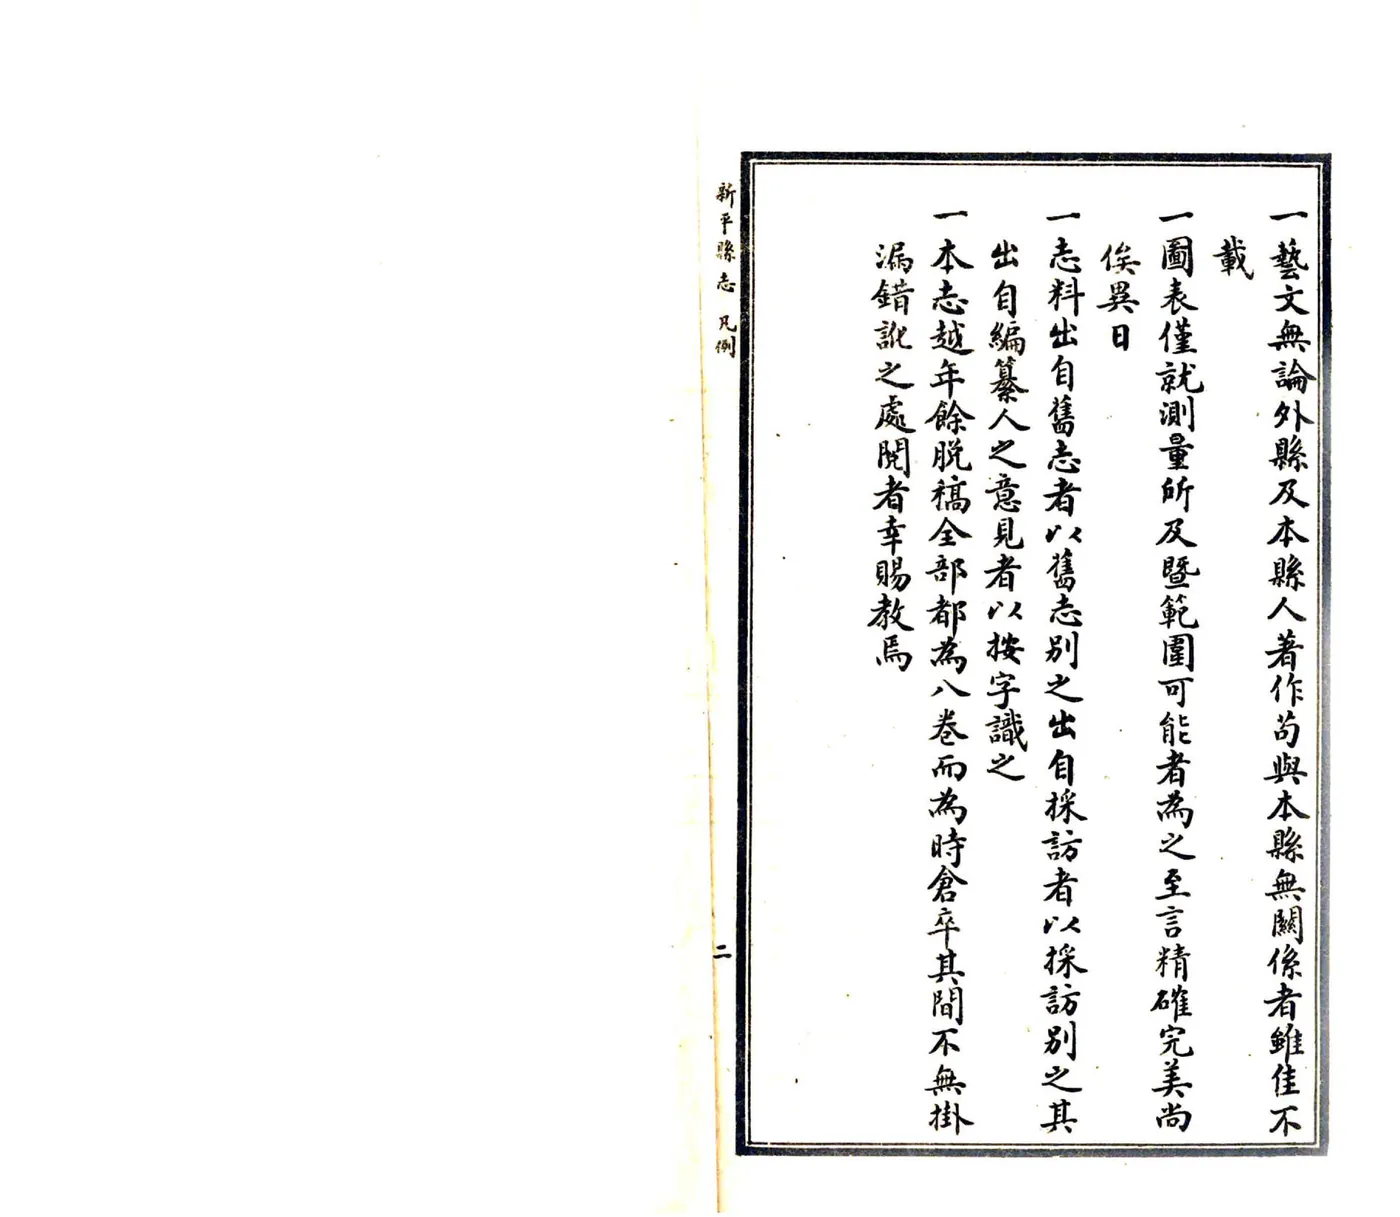 一藝文無論外縣及本縣人著作苟與本縣無關係者雖佳不
載
一圖表僅就測量所及暨範圍可能者為之至言精確完美尚
俟異日
一志料出自舊志者以舊志別之出自採訪者以採訪別之其
出自編纂人之意見者以按字識之
一本志越年餘脫稿全部都為八卷而為時倉卒其間不無掛
漏錯訛之處閱者幸賜教焉
新平縣志 凡例
二